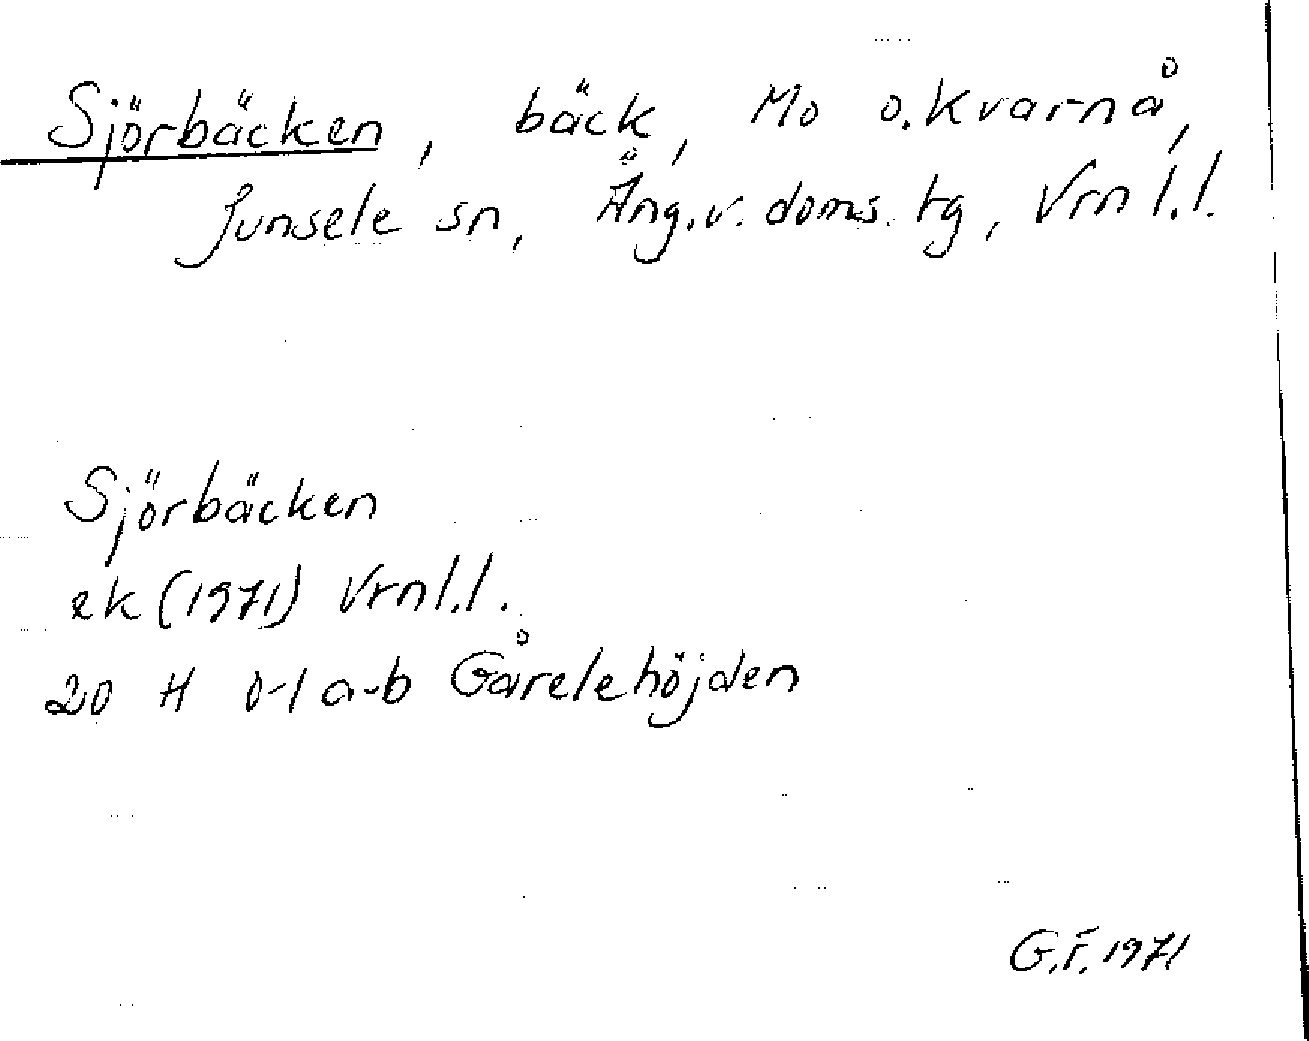 Sjörbäcken, bäck, Mo o. Kvarnå,
Junsele sn, Ång. v. doms. tg, Vrnl.l.
Sjörbäcken
ek (1971) Vrnl.l.
20 H 0-1 a-b Gårelehöjden
G.F. 1971